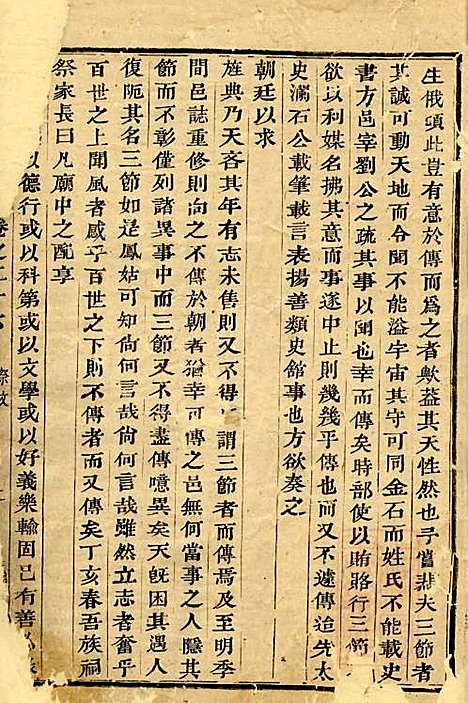 生俄頃此豈有意於傳而為之者歟益其天性然也予嘗悲夫三節者
其誠可動天地而令聞不能溢宇宙其守可同金石而姓氏不能載史
書方邑宰劉公之疏其事以聞也幸而傳矣時部使以賄賂行三節
欲以利媒名拂其意而事遂中止則幾幾乎傳而又不遽傳迨先太
史滿石公載筆載言表揚善類史館事也方欲奏之
朝廷以求
旌典乃天吝其年有志未售則又不得謂三節者而傳焉及至明季
間邑誌重修則向之不傳於朝者猶幸可傳之邑無何當事之人隱其
節而不彰僅列諸異事中而三節又不得盡傳噫異矣天旣困其遇人
復阨其名三節如是鳳姑可知尚何言哉尚何言哉雖然立志者奮乎
百世之上聞風者感乎百世之下則不傳者而又傳矣丁亥春吾族祠
祭家長曰凡廟中之配享
以德行或以科第或以文學或以好義樂輸固已有善
卷之二十六 祭故